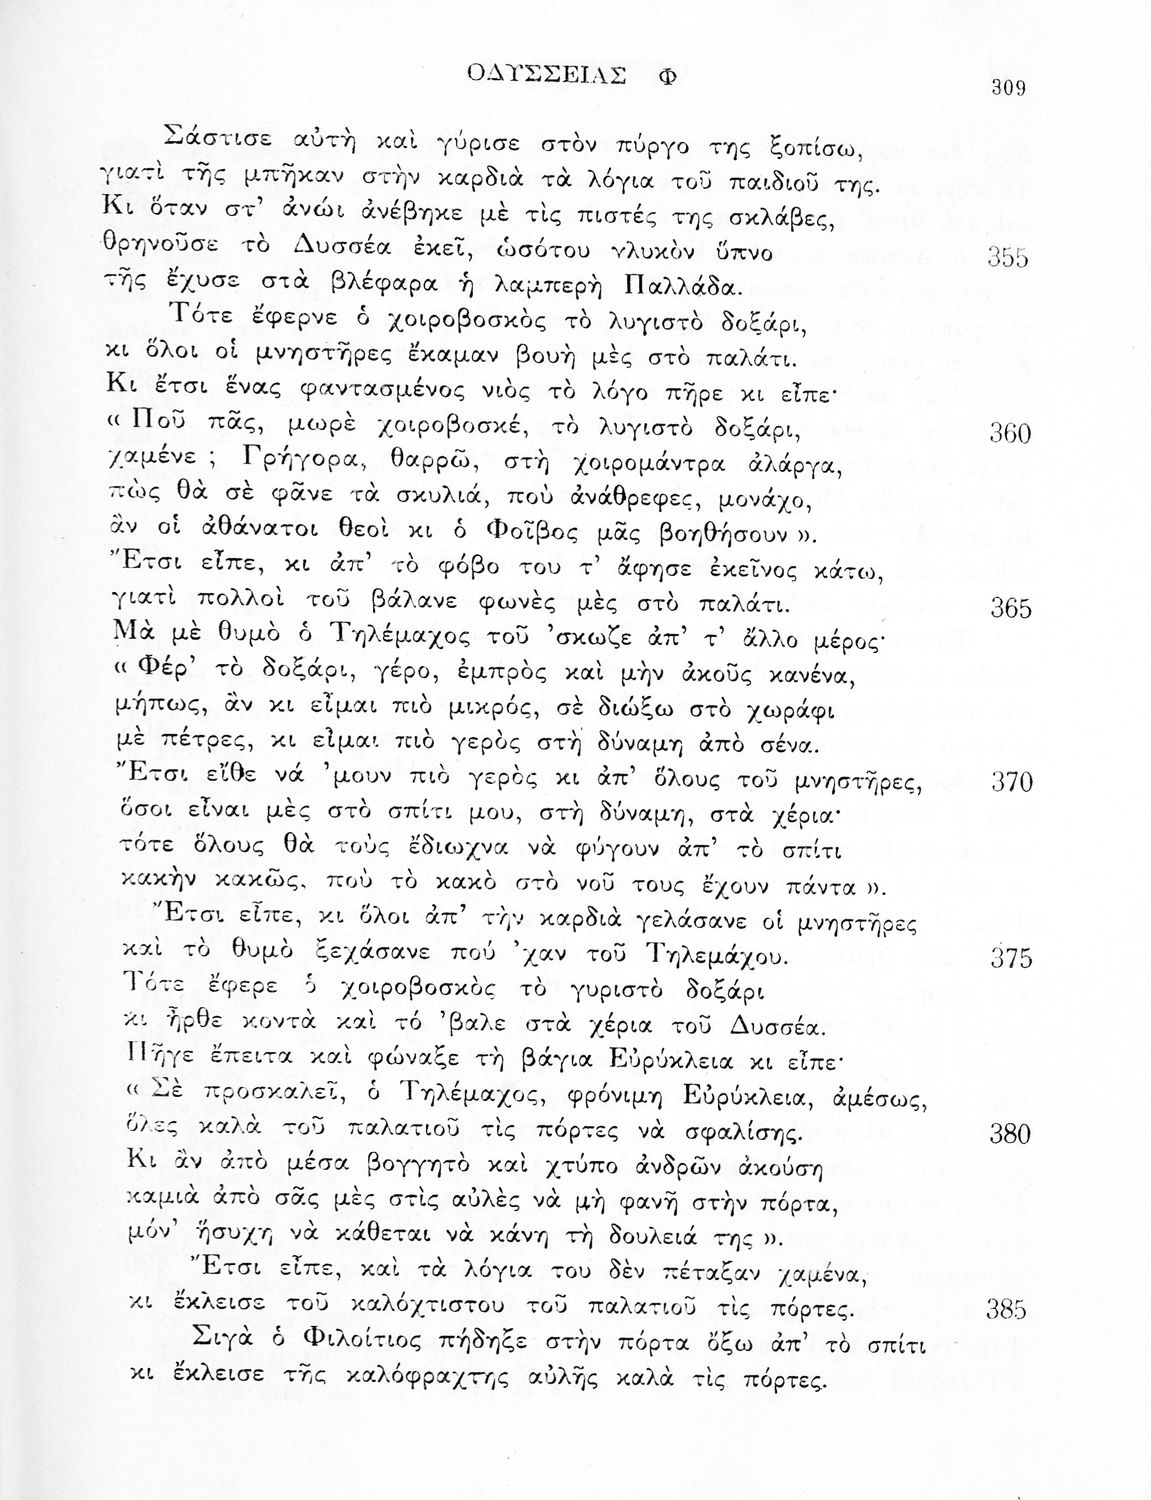 ΟΔΥΣΣΕΙΑΣ Φ
309
Σάστισε αὐτὴ καὶ γύρισε στὸν πύργο της ξοπίσω,
γιατὶ τῆς μπῆκαν στὴν καρδιὰ τὰ λόγια τοῦ παιδιοῦ της.
Κι ὅταν στ’ ἀνώι ἀνέβηκε μὲ τὶς πιστές της σκλάβες,
θρηνοῦσε τὸ Δυσσέα ἐκεῖ, ὡσότου γλυκὸν ὕπνο 355
τῆς ἔχυσε στὰ βλέφαρα ἡ λαμπερὴ Παλλάδα.
Τότε ἔφερνε ὁ χοιροβοσκὸς τὸ λυγιστὸ δοξάρι,
κι ὅλοι οἱ μνηστῆρες ἔκαμαν βουὴ μὲς στὸ παλάτι.
Κι ἔτσι ἕνας φαντασμένος νιὸς τὸ λόγο πῆρε κι εἶπε·
« Ποῦ πᾶς, μωρὲ χοιροβοσκέ, τὸ λυγιστὸ δοξάρι, 360
χαμένε ; Γρήγορα, θαρρῶ, στὴ χοιρομάντρα ἀλάργα,
πὼς θὰ σὲ φᾶνε τὰ σκυλιά, ποὺ ἀνάθρεφες, μονάχο,
ἂν οἱ ἀθάνατοι θεοὶ κι ὁ Φοῖβος μᾶς βοηθήσουν ».
Ἔτσι εἶπε, κι ἀπ’ τὸ φόβο του τ’ ἄφησε ἐκεῖνος κάτω,
γιατὶ πολλοὶ τοῦ βάλανε φωνὲς μὲς στὸ παλάτι. 365
Μὰ μὲ θυμὸ ὁ Τηλέμαχος τοῦ ’σκωζε ἀπ’ τ’ ἄλλο μέρος·
« Φέρ’ τὸ δοξάρι, γέρο, ἐμπρὸς καὶ μὴν ἀκοῦς κανένα,
μήπως, ἂν κι εἶμαι πιὸ μικρός, σὲ διώξω στὸ χωράφι
μὲ πέτρες, κι εἶμαι πιὸ γερὸς στὴ δύναμη ἀπὸ σένα.
Ἔτσι εἴθε νά ’μουν πιὸ γερὸς κι ἀπ’ ὅλους τοῦ μνηστῆρες, 370
ὅσοι εἶναι μὲς στὸ σπίτι μου, στὴ δύναμη, στὰ χέρια·
τότε ὅλους θὰ τοὺς ἔδιωχνα νὰ φύγουν ἀπ’ τὸ σπίτι
κακὴν κακῶς, ποὺ τὸ κακὸ στὸ νοῦ τους ἔχουν πάντα ».
Ἔτσι εἶπε, κι ὅλοι ἀπ’ τὴν καρδιὰ γελάσανε οἱ μνηστῆρες
καὶ τὸ θυμὸ ξεχάσανε πού ’χαν τοῦ Τηλεμάχου. 375
Τότε ἔφερε ὁ χοιροβοσκὸς τὸ γυριστὸ δοξάρι
κι ἦρθε κοντὰ καὶ τό ’βαλε στὰ χέρια τοῦ Δυσσέα.
Πῆγε ἔπειτα καὶ φώναξε τὴ βάγια Εὐρύκλεια κι εἶπε·
« Σὲ προσκαλεῖ, ὁ Τηλέμαχος, φρόνιμη Εὐρύκλεια, ἀμέσως,
ὅλες καλὰ τοῦ παλατιοῦ τὶς πόρτες νὰ σφαλίσης. 380
Κι ἂν ἀπὸ μέσα βογγητὸ καὶ χτύπο ἀνδρῶν ἀκούση
καμιὰ ἀπὸ σᾶς μὲς στὶς αὐλὲς νὰ μὴ φανῆ στὴν πόρτα,
μόν’ ἥσυχη νὰ κάθεται νὰ κάνη τὴ δουλειά της ».
Ἔτσι εἶπε, καὶ τὰ λόγια του δὲν πέταξαν χαμένα,
κι ἔκλεισε τοῦ καλόχτιστου τοῦ παλατιοῦ τὶς πόρτες. 385
Σιγὰ ὁ Φιλοίτιος πήδηξε στὴν πόρτα ὄξω ἀπ’ τὸ σπίτι
κι ἔκλεισε τῆς καλόφραχτης αὐλῆς καλὰ τὶς πόρτες.